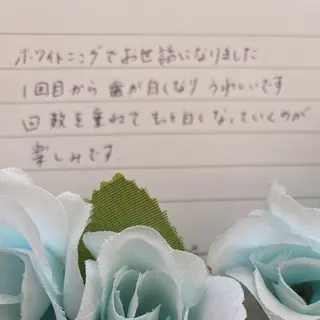 ホワイトニングでお世話になりました
1回目から歯が白くなりうれしいです
回数を重ねてもっと白くなっていくのが
楽しみです.